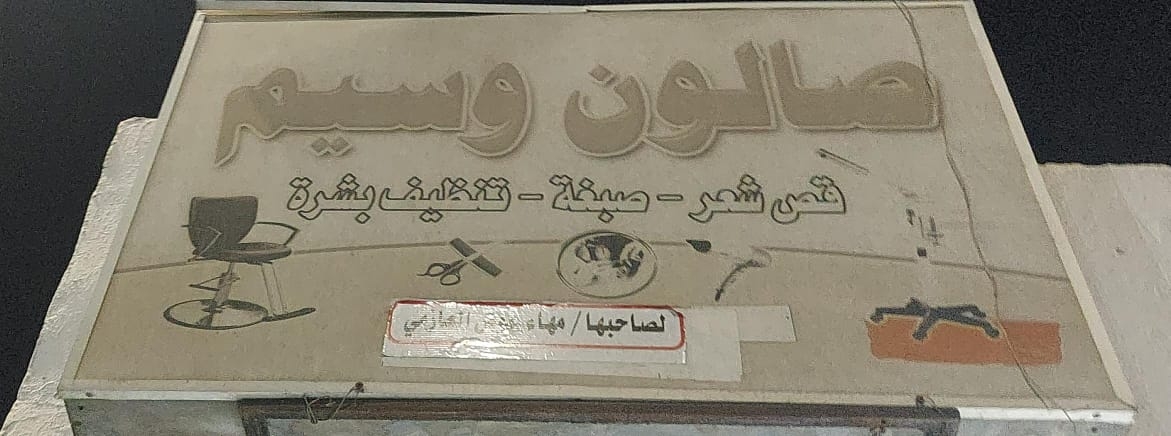 صالون وسيم
قص شعر - صبغة - تنظيف بشرة
لصاحبها / مهاء العازمي